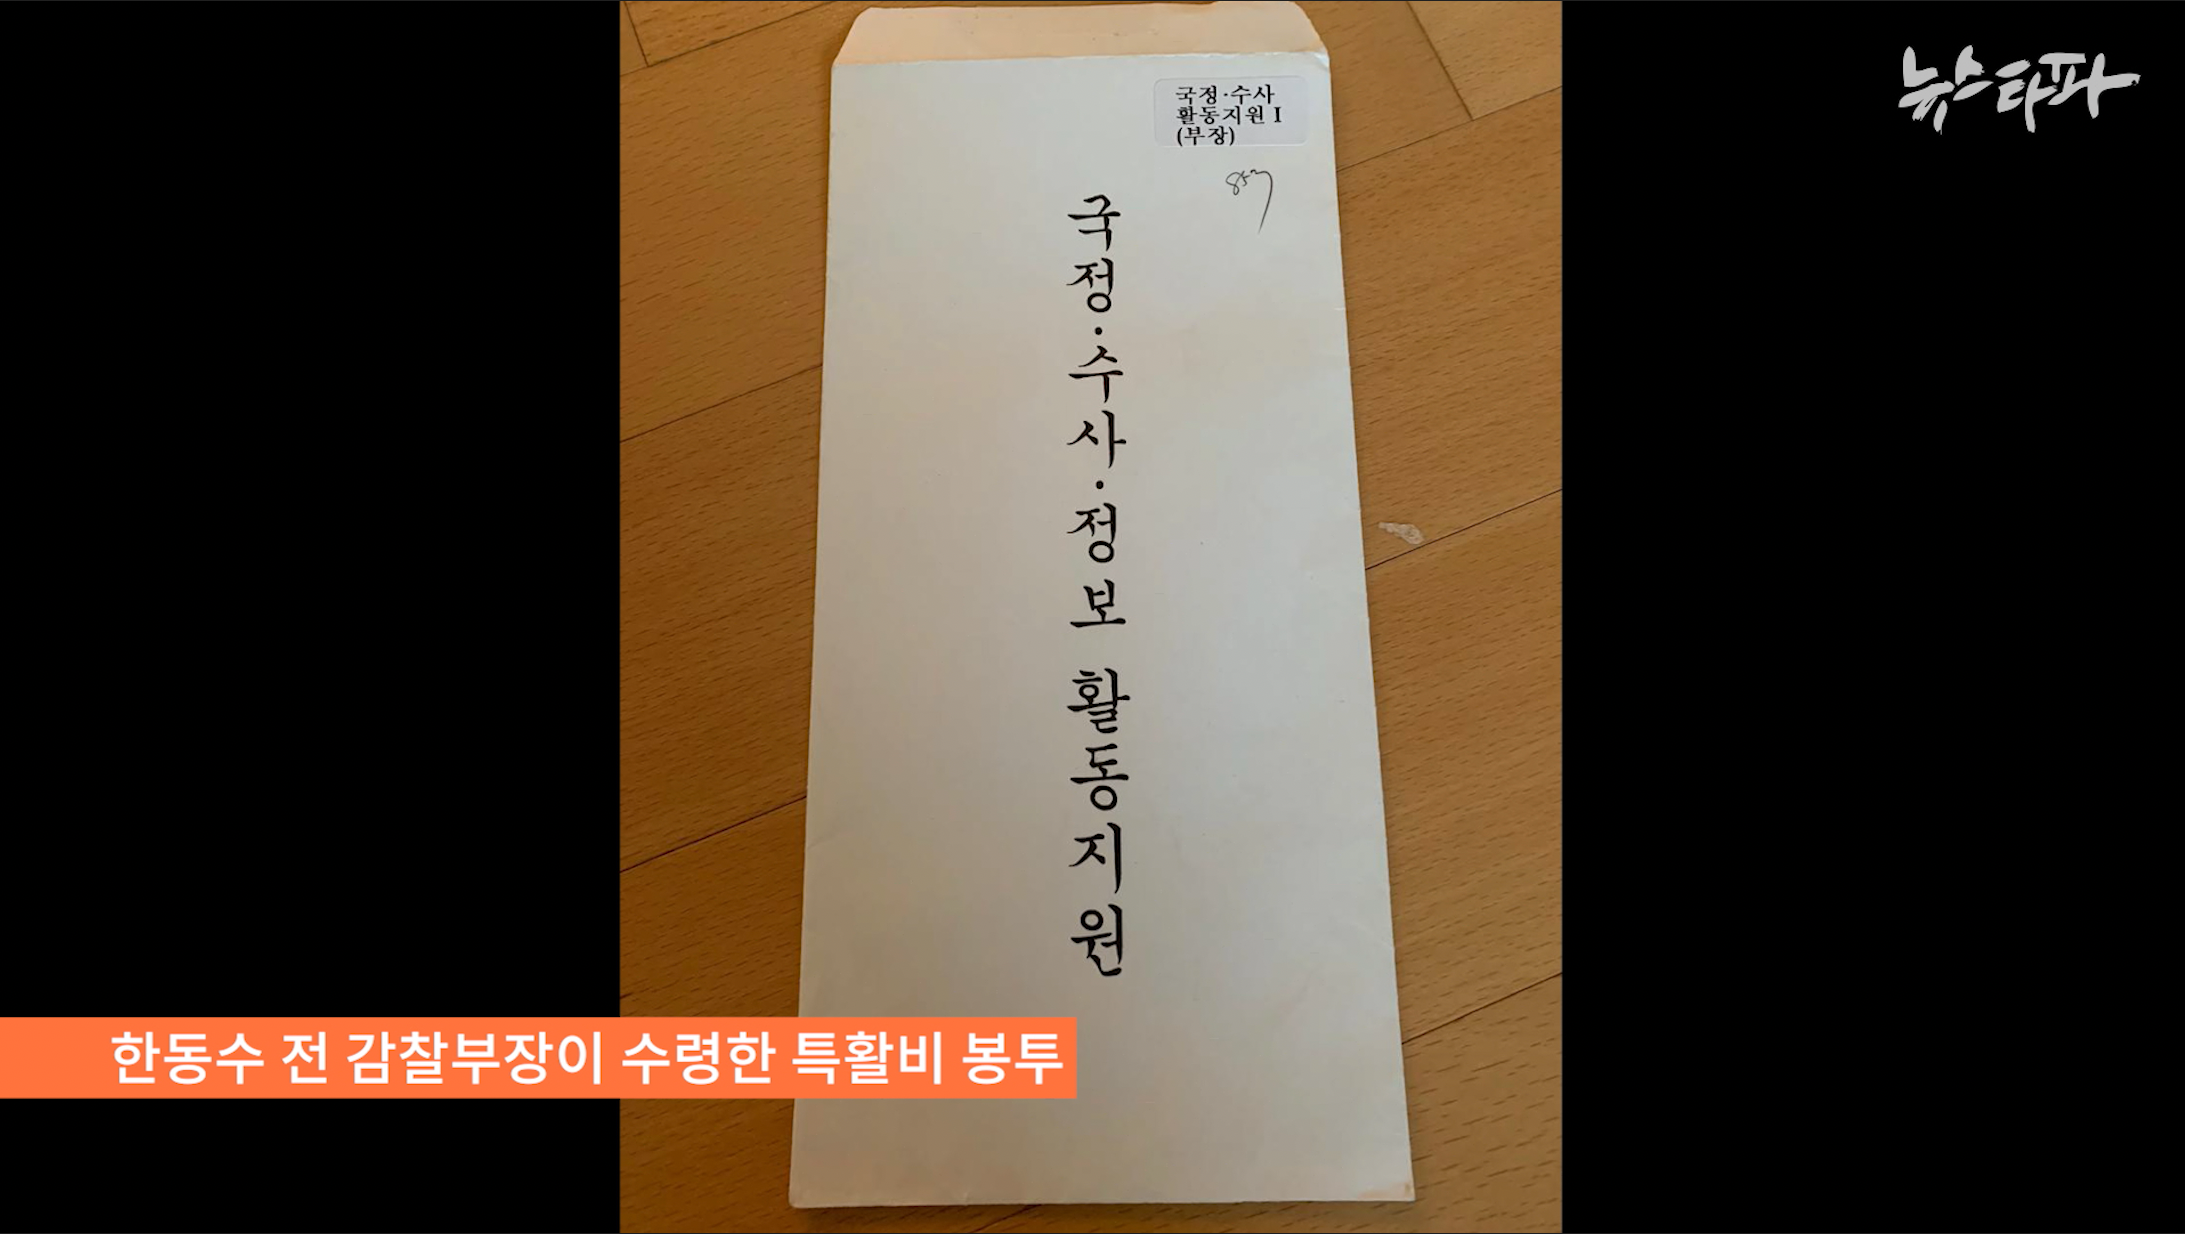 뉴스타파
국정·수사
활동지원 I
(부장)
국정·수사·정보 활동지원
한동수 전 감찰부장이 수령한 특활비 봉투